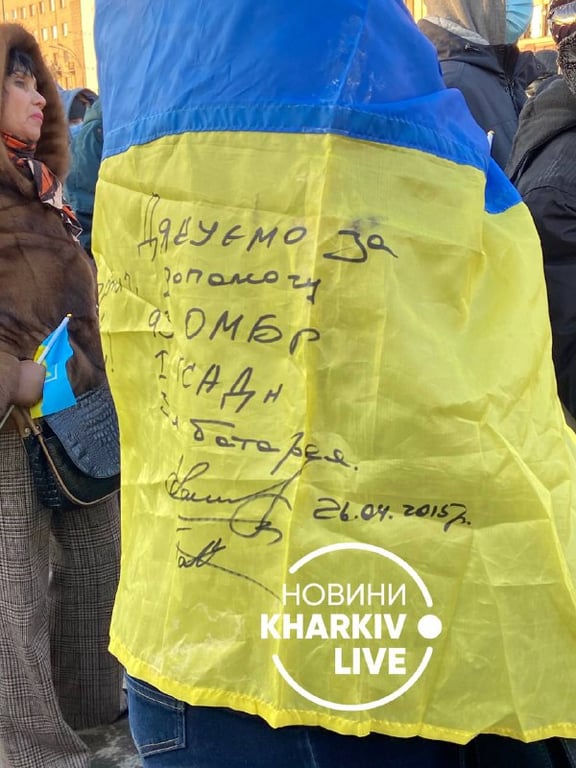 Дякуємо за
допомогу
93 ОМБр
І САДн
батарея.
26.04.2015р.
НОВИНИ
KHARKIV
LIVE